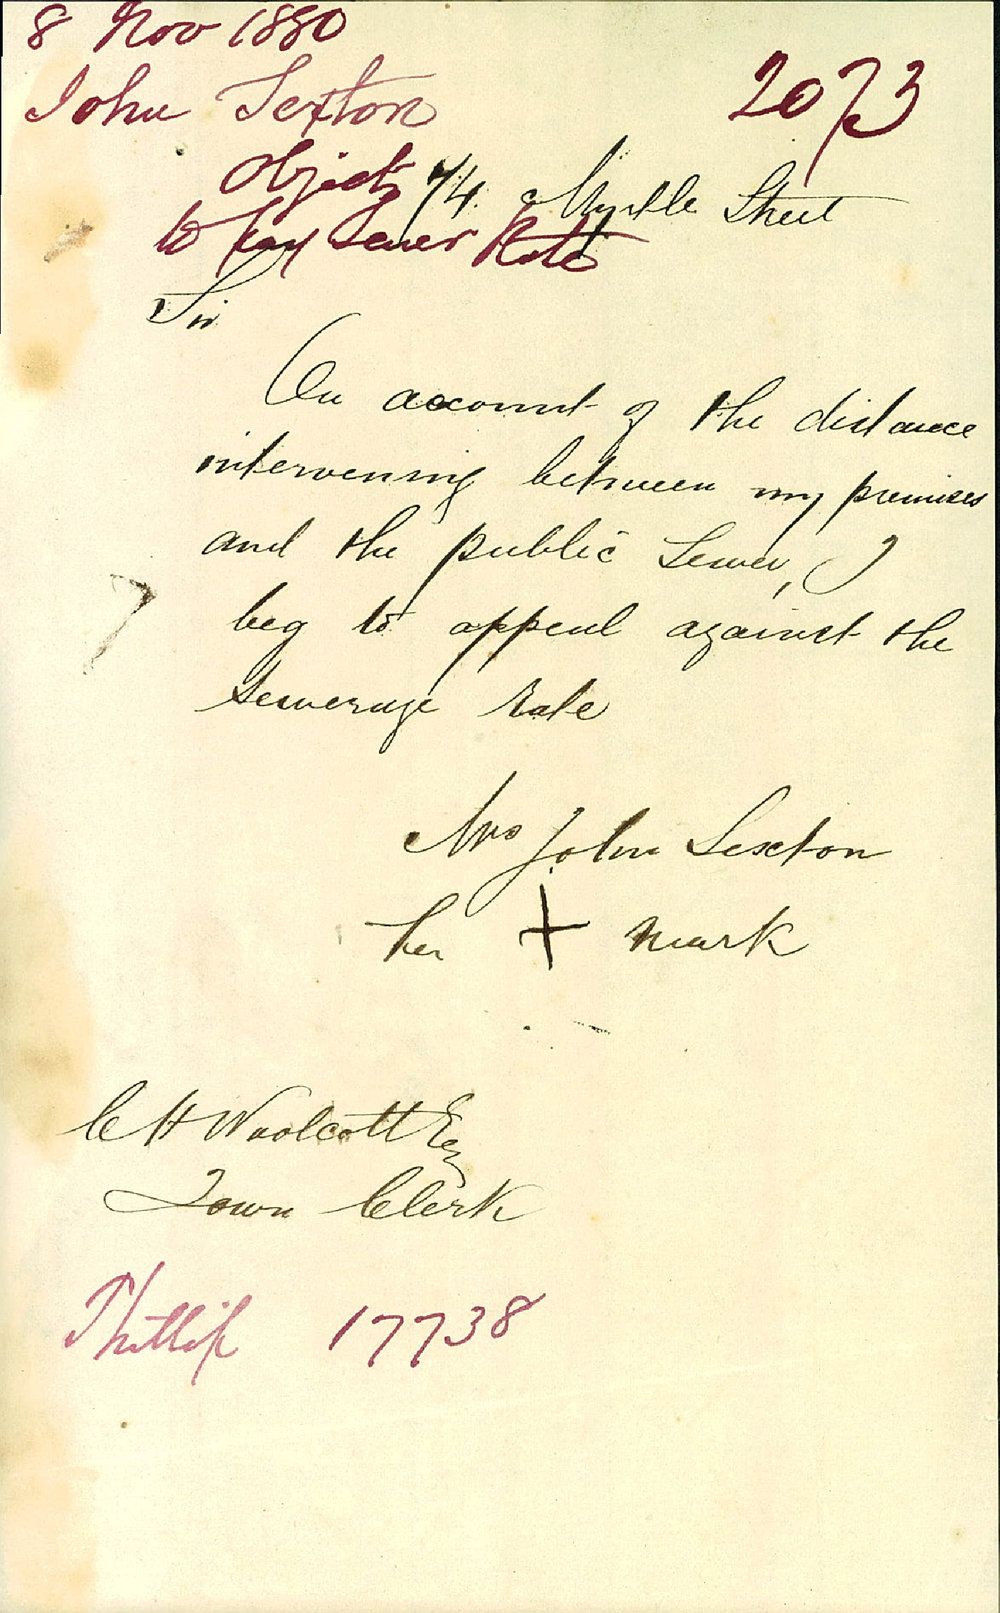 8 Nov 1880
John Sexton
2073
Objects
74 Myrtle Street
to pay Sewer Rate
Sir
On account of the distance
intervening between my premises
and the public Sewer, I
beg to appeal against the
Sewerage Rate
Mrs John Sexton
her + mark
C H Woolcott Esq
Town Clerk
Phillip 17738